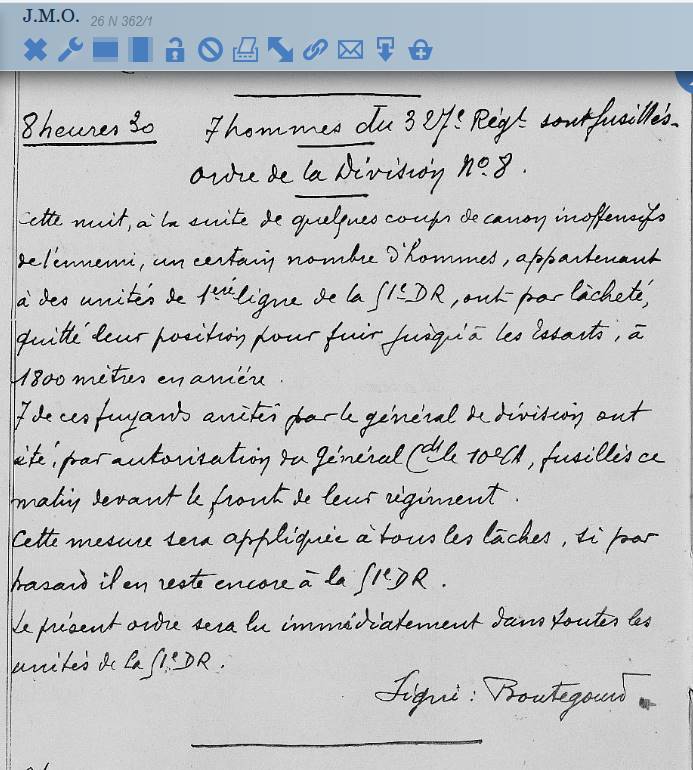 J.M.O. 26 N 362/1
8 heures 30 7 hommes du 327e Régt sont fusillés.
Ordre de la Division No. 8.
Cette nuit, à la suite de quelques coups de canon inoffensifs
de l'ennemi, un certain nombre d'hommes, appartenant
à des unités de 1ère ligne de la 51e DR, ont par lâcheté,
quitté leur position pour fuir jusqu'à les Essarts, à
1800 mètres en arrière.
7 de ces fuyards arrêtés par le général de division ont
été, par autorisation du Général Cdt le 10e CA, fusillés ce
matin devant le front de leur régiment.
Cette mesure sera appliquée à tous les lâches, si par
hasard il en reste encore à la 51e DR.
Le présent ordre sera lu immédiatement dans toutes les
unités de la 51e DR.
Signé : Boutegourd